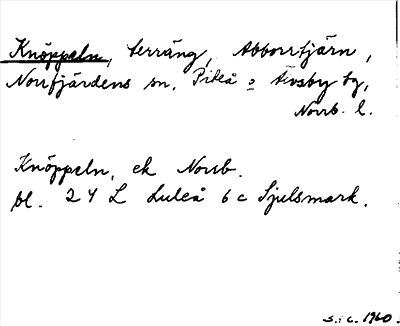 Knöppeln, terräng, Abborrtjärn,
Norrfjärdens sn, Piteå o Älvsby tg,
Norrb. l.
Knöppeln, ek Norrb.
bl. 24 L Luleå 6 c Sjulsmark.
S. i c. 1960.